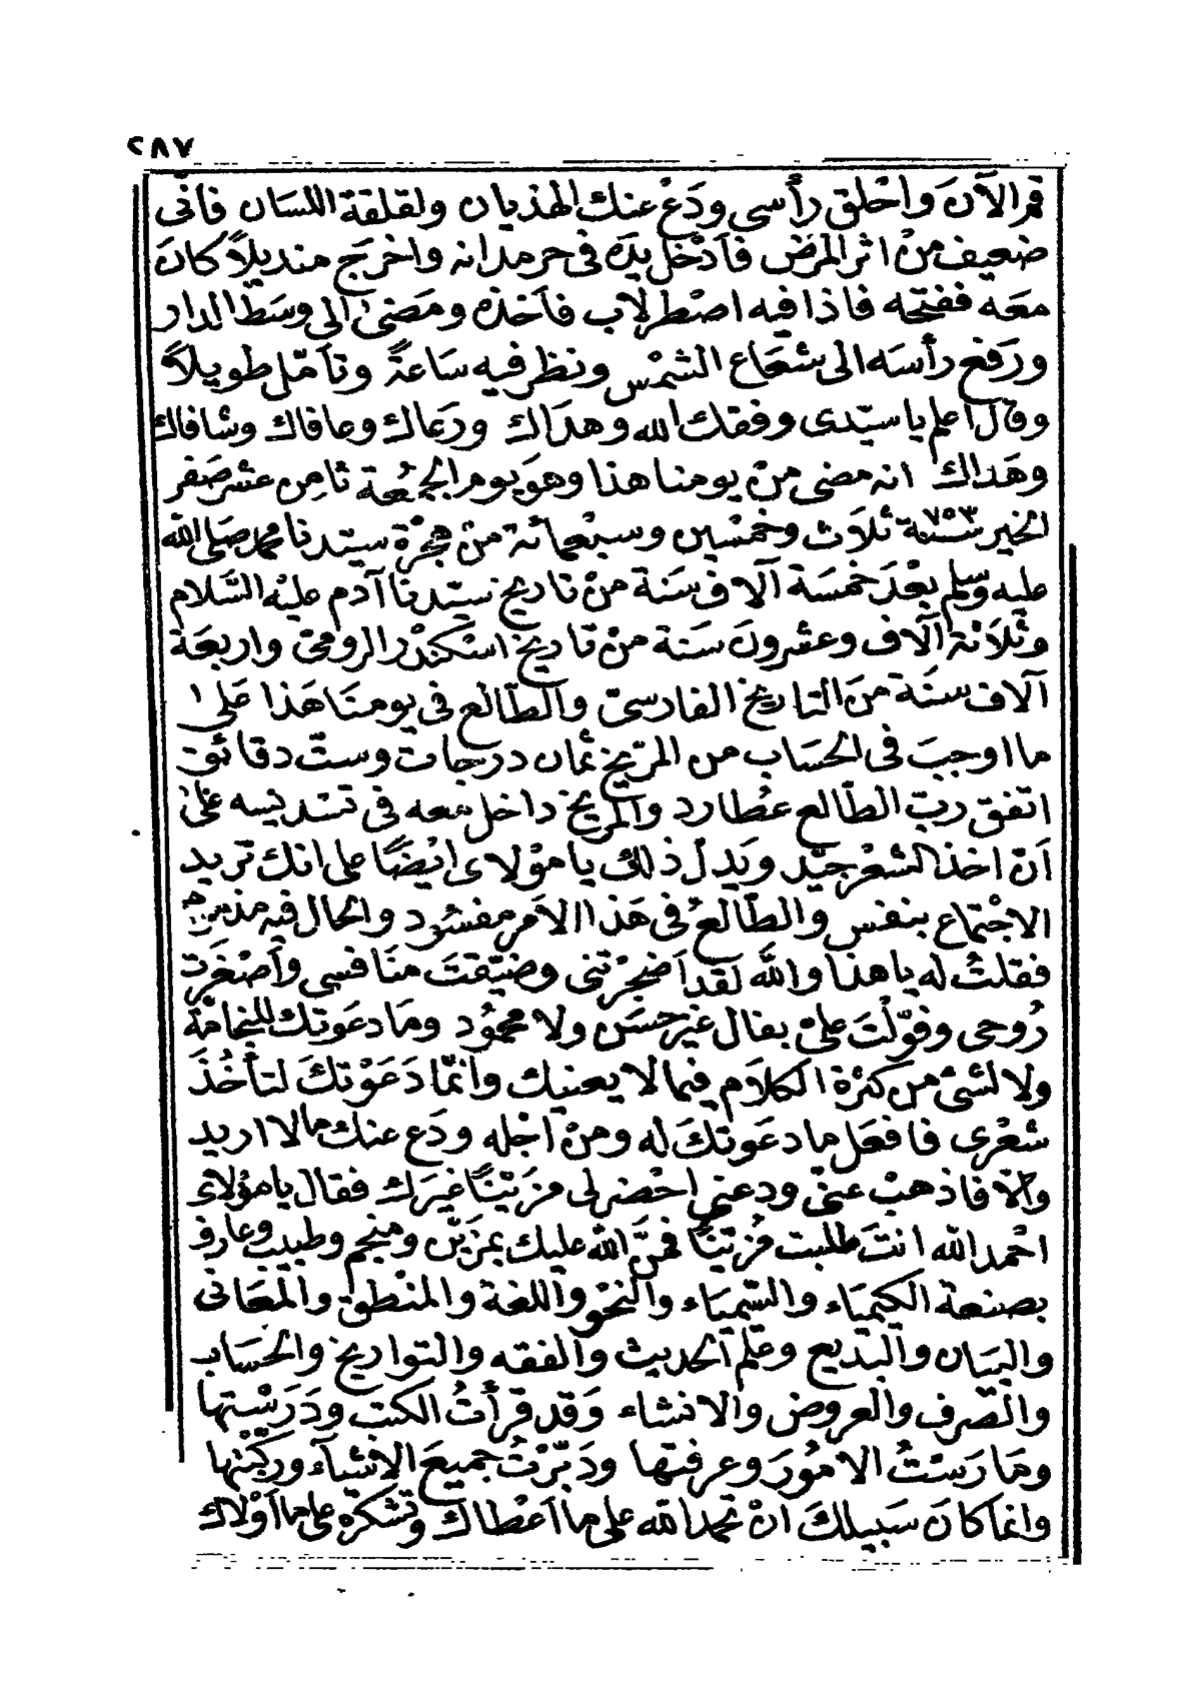 ٢٨٧
قم الآنَ واحْلق رأسي ودَعْ عنك الهذيان ولقلقة اللسَان فانّى
ضعيف منْ اثر المرَض فَأدْخَل يدَه فى حرمدانه واخرَج منديلاً كانَ
معَه ففتحه فاذا فيه اصْطرلاب فأخذه ومَضىٰ الى وسَط الدار
ورَفع رأسَه الى شعَاع الشمْس ونظر فيه سَاعَةً وتأمّل طويلاً
وقال اعلم يا سيّدى وفقك الله وهدَاك ورَعاك وعافاك وشافاك
وهَداك انه مضى منْ يومنا هذا وهوَ يوم الجمُعَة ثامِن عشر صَفر
الخير سنة ٧٥٣ ثلاث وخمْسين وسبْعمائة منْ هجْرة سيّدنا محمد صَلى الله
عليه وسلم بعْدَ خمسَة آلاف سَنة منْ تاريخ سيّدنا آدم عليْه السَّلام
وثلاثة آلاف وعشرونَ سَنة منْ تاريخ اسْكندَر الرومىّ واربعَة
آلاف سنَة منَ التاريخ الفارسىّ والطّالع فى يومنَا هَذا عَلى
ما اوجبَ فى الحسَاب من المرّيخ ثمان درَجات وستّ دقائق
اتفق ربّ الطّالع عُطارد والمرّيخ داخل معه فى تسْديسه علىٰ
اَنّ اخذ الشعْر جيّد ويَدلّ ذلك يا موْلاى ايْضًا على انك تريد
الاجْتماع بنفس والطّالعُ فى هَذا الامْر مفسُود والحال فيه مذموم
فقلتُ له يا هذا والله لقد اَضجرْتنى وضيّقتَ منَافسى وأصْغرت
رُوحى وفوّلْتَ علىّ بفال غير حسَن ولا محمُود ومَا دعَوتك للنجامَة
ولا لشىْ من كثرة الكلاَم فيما لا يعنيك وانمّا دَعَوْتكَ لتأخُذَ
شعْرى فافعَل ما دعَوتكَ له ومنْ اجْله ودَع عنك ما لا اريد
والّا فاذهبْ عنّى ودعنى احْضر لى مزَيّنًا غيرَك فقال يا موْلاى
احْمد الله انتَ طلبت مُزيّنًا فمَنَّ الله عليك بمزَيّن ومنجم وطبيب وعارف
بصنعة الكيميَاء والسّيميَاء والنحْو واللغة والمنْطق والمعَانى
والبيَان والبَديع وعلْم الحديث والفقه والتواريخ والحسَاب
والصّرف والعروض والانشاء وَقد قرأتُ الكتب ودَرَسْتها
ومَارَسْتُ الامُورَ وعرفتها ودَبّرْتُ جميعَ الاشْياَء وركبْتها
وانما كانَ سَبيلكَ انْ تحمدَ الله على ما اَعْطاك وتشكره على ما أوْلاك